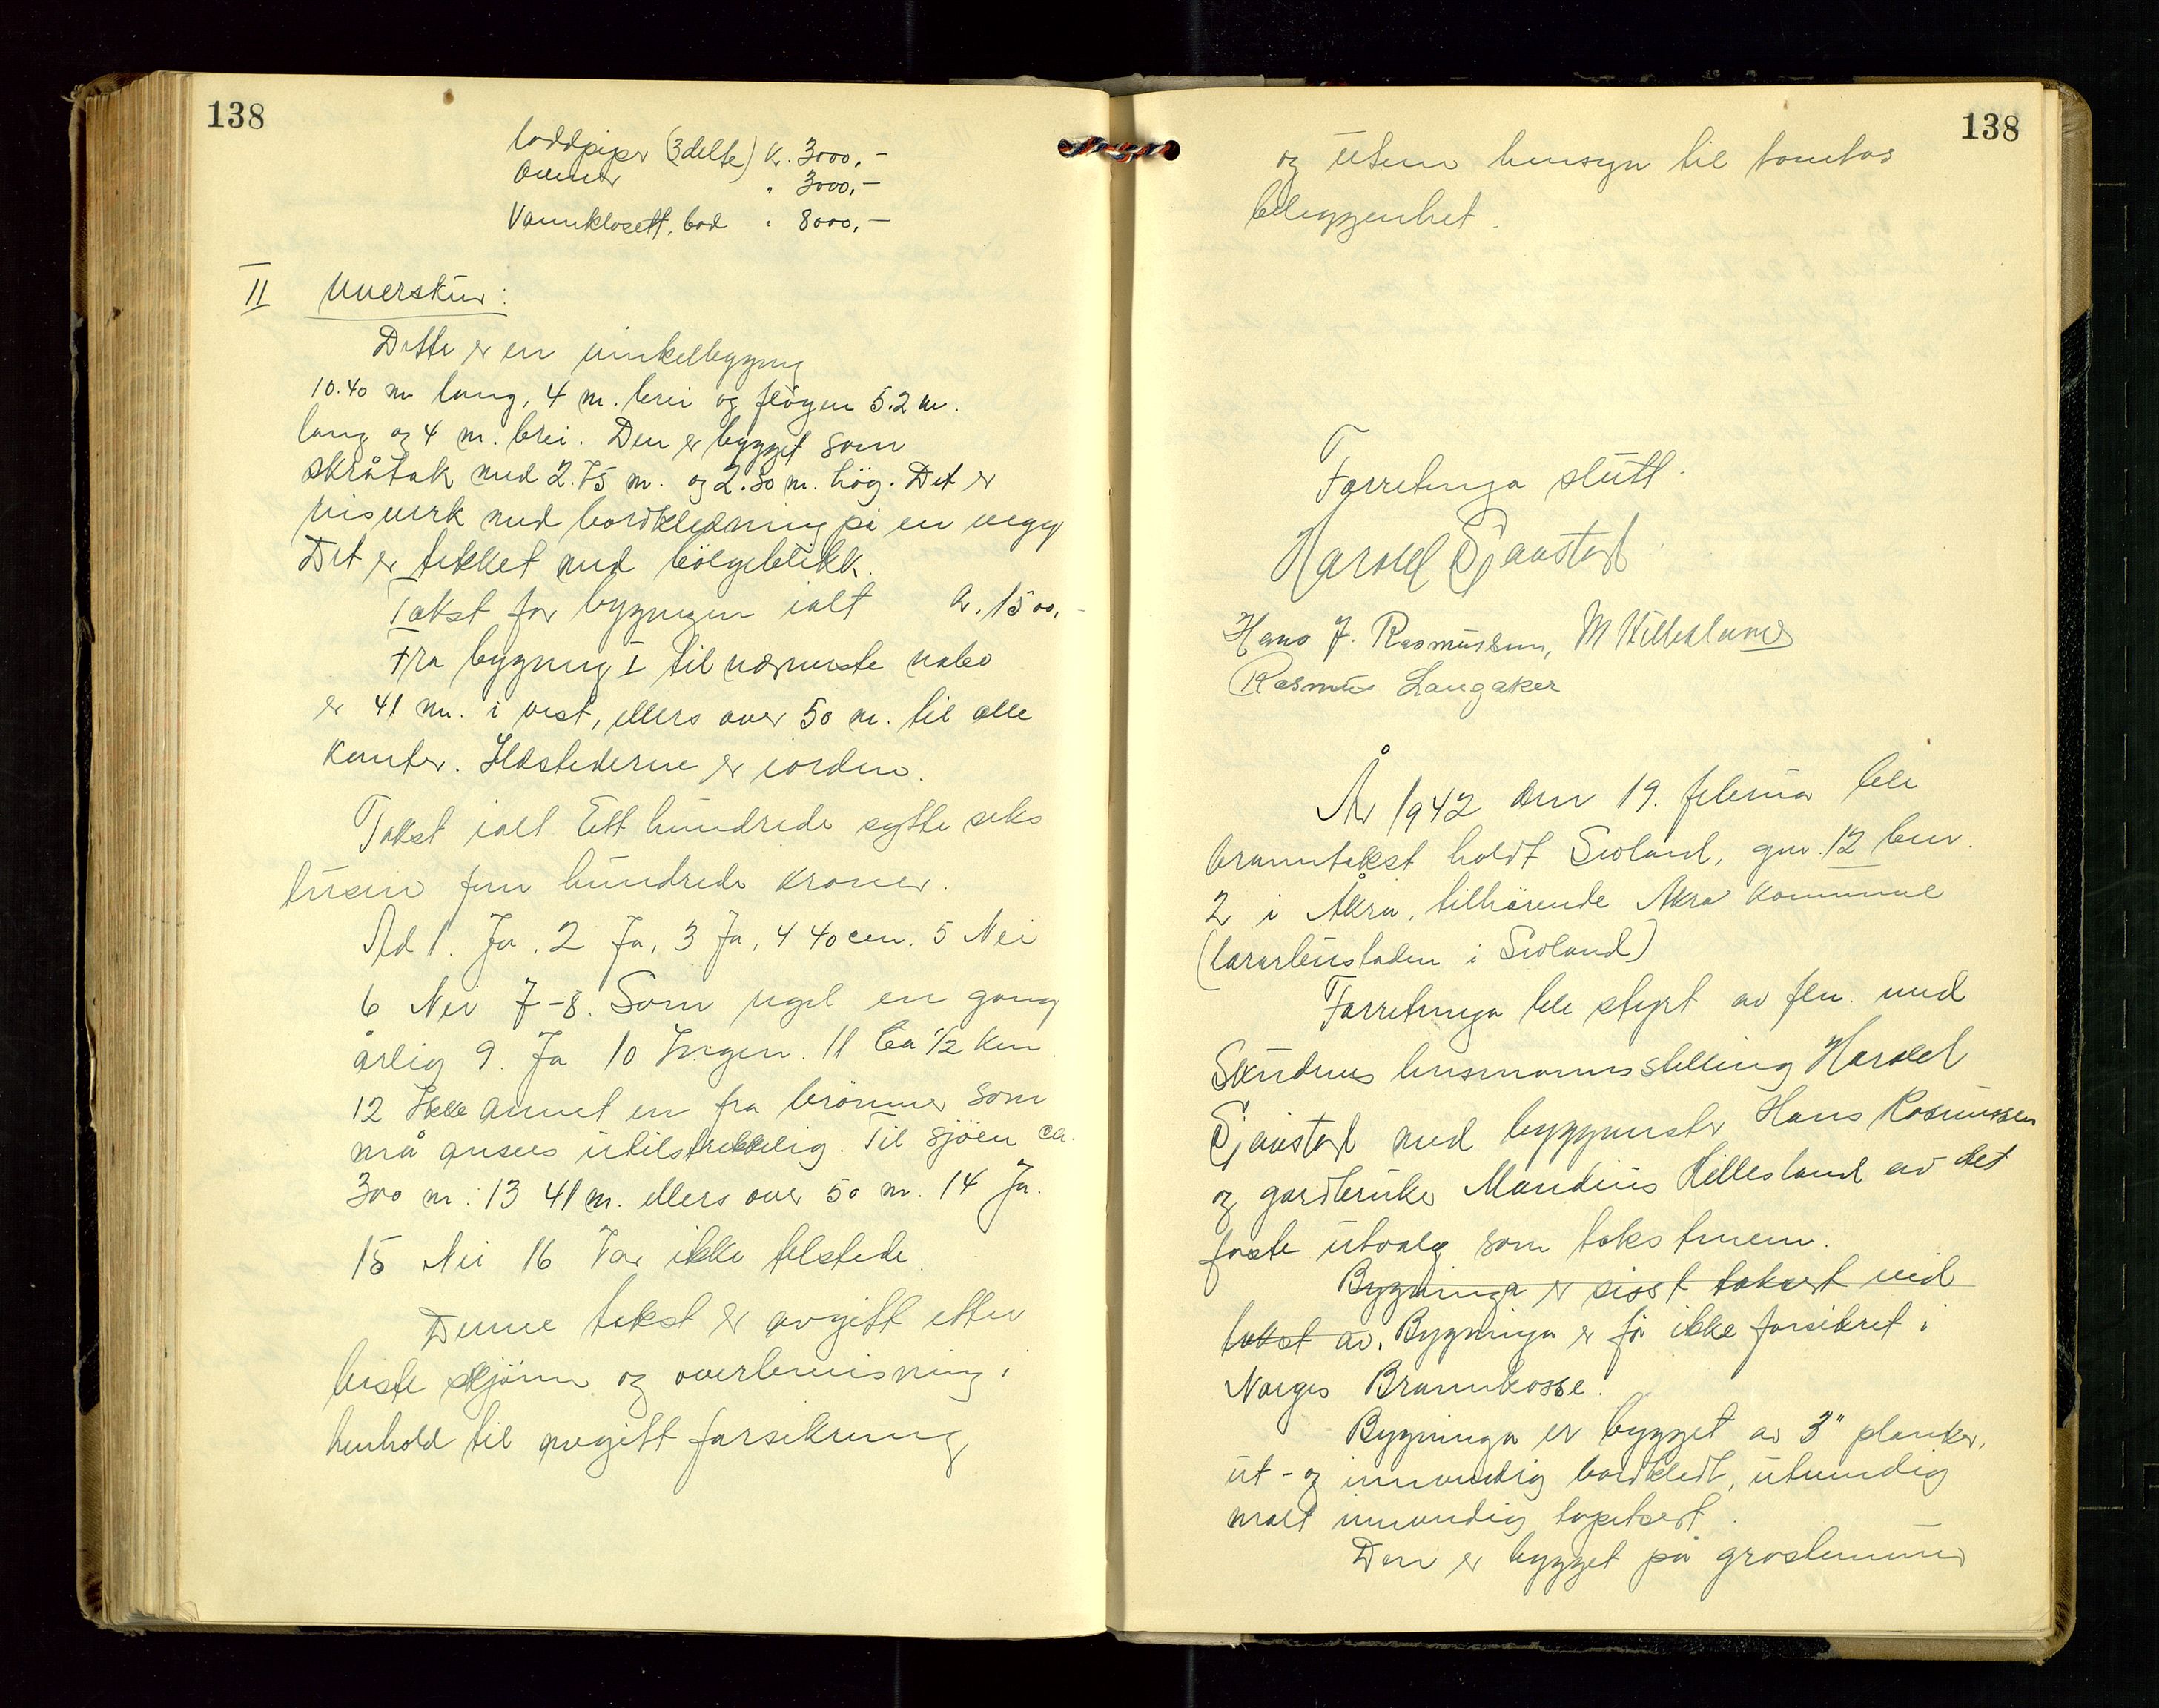 138
loddpiper (3delte) K. 3000,-
Ovner " 3000,-
Vannklosett, bad " 8000,-
II Uverskur:
Dette er en vinkelbygning
10.40 m lang, 4 m. brei og fløyen 5.2 m.
lang og 4 m. brei. Den er bygget som
skråtak med 2.75 m. og 2.30 m. høg. Det er
bisverk med bordkledning på en vegg
Det er tekket med bølgeblikk.
Takst for bygningen ialt kr. 1500,-
Fra bygning I til nærmeste nabo
er 41 m. i vest, ellers over 50 m. til alle
kanter. Ildstederne er iorden.
Takst ialt Ett hundrede sytti seks
tusen fem hundrede kroner.
Ad 1. Ja, 2 Ja, 3 Ja, 4 40 cm. 5 Nei
6 Nei 7-8. Som regel en gang
årlig 9. Ja 10 Ingen. 11 Ca 1/2 km
12 Ikke annet en fra brønner som
må ansees utilstrekkelig. Til sjøen ca.
300 m. 13 41 m. ellers over 50 m. 14 Ja.
15 Nei 16 Var ikke tilstede.
Denne takst er avgitt etter
beste skjønn og overbevisning i
henhold til avgitt forsikring
138
og uten hensyn til tomtas
beliggenhet.
Forretninga slutt.
Harald Sjaastad
Hans J. Rasmussen, M Hillesland
Rasmus Langaker
År 1942 den 19. februar ble
branntakst holdt Sioland, gnr. 12 bnr.
2 i Åkra, tilhørende Åkra kommune
(lærarbustaden i Sioland)
Forretninga ble styrt av fm. ved
Skudenes lensmannsstilling Harald
Sjaastad med byggmester Hans Rasmussen
og gardbruker Mandius Hillesland av det
faste utvalg som takstmenn.
Bygninga er sisst taksert ved
takst av. Bygninga er før ikke forsikret i
Norges Brannkasse.
Bygninga er bygget av 3" planker,
ut- og innvendig bordkledt, utvendig
malt innvendig tapetsert.
Den er bygget på gråsteinmur